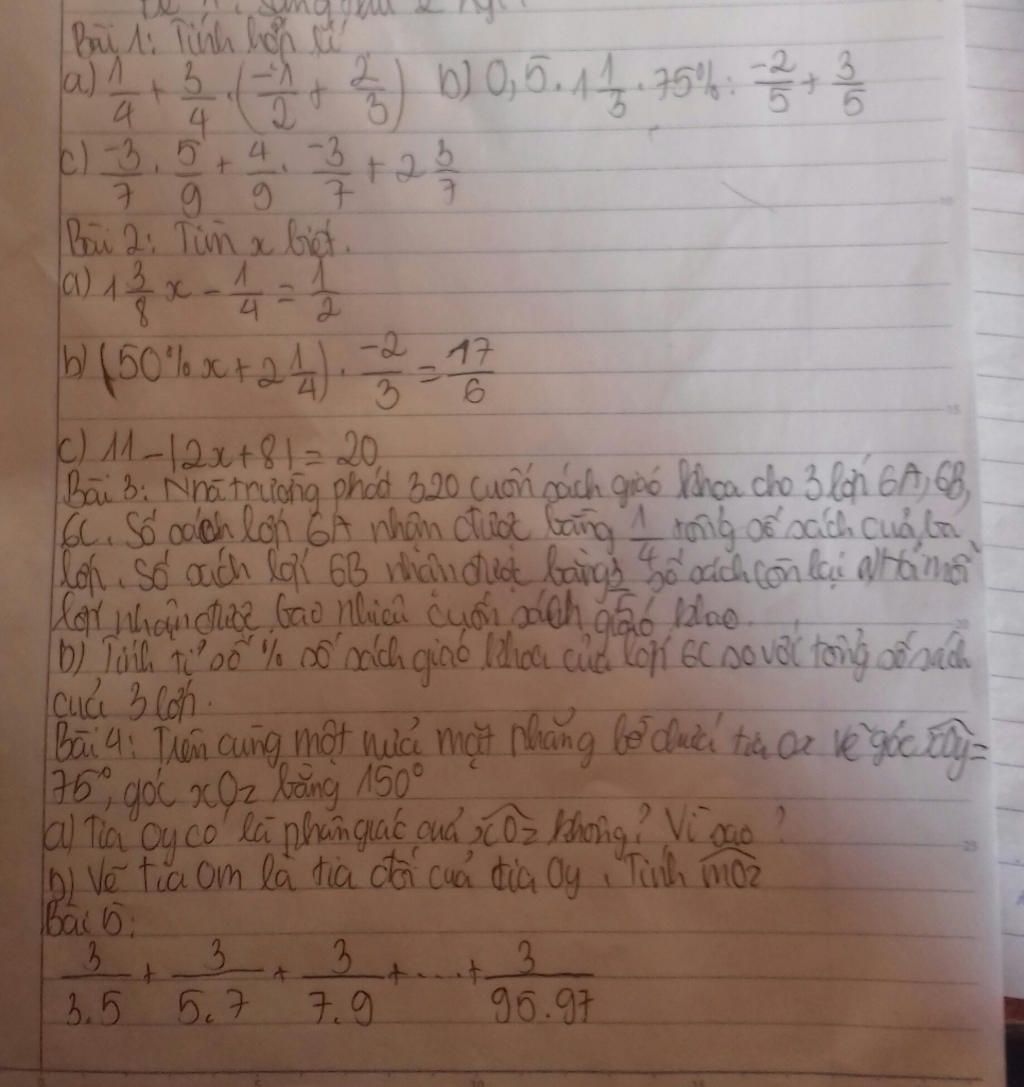 Bài 1: Tính hợp lí
a) 1/4 + 3/4 . (-1/2 + 2/3) b) 0,5 . 1 1/3 . 75% : -2/5 + 3/5
c) -3/7 . 5/9 + 4/9 . -3/7 + 2 3/7
Bài 2: Tìm x biết.
a) 1 3/8 x - 1/4 = 1/2
b) (50% x + 2 1/4) . -2/3 = 17/6
c) 11 - |2x + 8| = 20
Bài 3: Nhà trường phát 320 cuốn sách giáo khoa cho 3 lớp 6A, 6B,
6C. Số sách lớp 6A nhận được bằng 1/4 tổng số sách của ba
lớp. Số sách lớp 6B nhận được bằng số sách còn lại a) Hỏi mỗi
lớp nhận được bao nhiêu cuốn sách giáo khao.
b) Tính tỉ số % số sách giáo khoa của lớp 6C so với tổng số sách
của 3 lớp.
Bài 4: Trên cùng một nửa mặt phẳng bờ chứa tia Ox vẽ góc xOy =
75°, góc xOz bằng 150°
a) Tia Oy có là phân giác của xOz không? Vì sao?
b) Vẽ tia Om là tia đối của tia Oy. Tính mOz
Bài 5:
3/3.5 + 3/5.7 + 3/7.9 + .... + 3/95.97